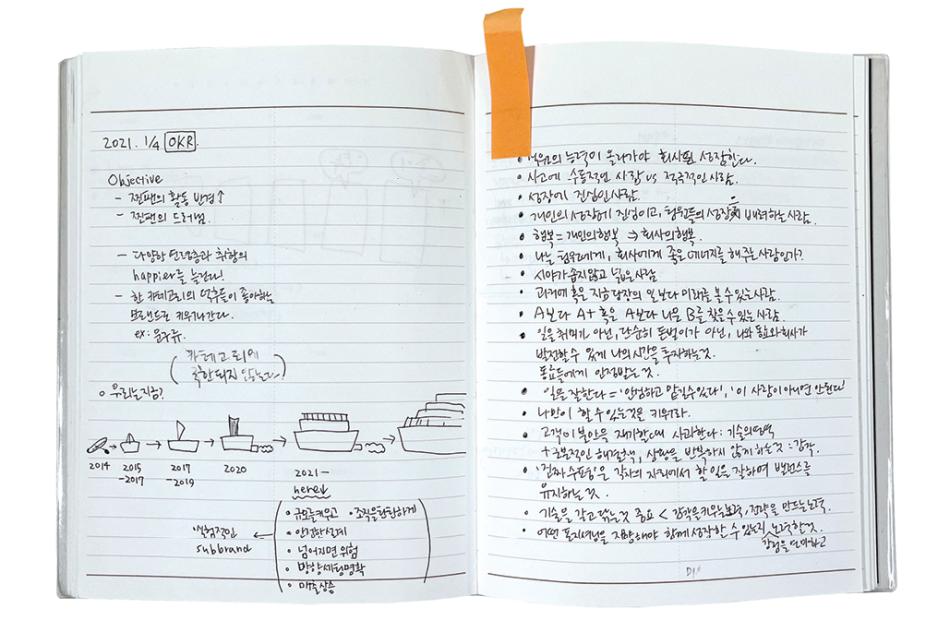 2021. 1/4 OKR.
Objective
- 찐팬의 활동 반경↑
- 찐팬의 드러남.
- 다양한 연령층과 취향의
happier를 늘린다!
- 한 카테고리의 덕후들이 좋아하는
브랜드로 키워나간다.
ex: 문구류.
(카테고리에
국한되지 않는다!)
○ 우리는 지금?
2014 → 2015 -2017 → 2017 -2019 → 2020 → 2021-
here!
실험적인
subbrand
• 규모를 키우고 • 조직을 탄탄하게
• 안전한 설계
• 넘어지면 위험
• 방향 세팅 명확
• 매출 상승
• 팀원의 능력이 올라가야 회사도 성장한다.
• 사고에 수동적인 사람 vs 적극적인 사람.
• 성장에 진심인 사람.
• 개인의 성장에 진심이고, 팀원들의 성장을 배려하는 사람.
• 행복 = 개인의 행복 ⇒ 회사의 행복.
• 나는 팀원에게, 회사에게 좋은 에너지를 해주는 사람인가?
• 시야가 좁지 않고 넓은 사람
• 과거에 혹은 지금 당장의 일보다 미래를 볼 수 있는 사람.
• A보다 A+ 혹은 A보다 나은 B를 찾을 수 있는 사람.
• 일을 취미가 아닌, 단순히 돈벌이가 아닌, 나와 동료와 회사가
발전할 수 있게 나의 시간을 투자하는 것.
동료들에게 인정받는 것.
• '일을 잘한다' = '안심하고 맡길 수 있다', '이 사람이 아니면 안된다'
• 나만이 할 수 있는 것을 키워라.
• 고객이 불만을 제기할 때 사과한다 : 기술의 영역
+ 근본적인 해결책, 상황을 반복하지 않게 하는 것 : 감각
• '진짜 수평'은 각자의 자리에서 할 일을 잘하여 밸런스를
유지하는 것.
• 기술을 갈고 닦는 것 중요 < 감각을 키우는 노력, 전략을 만드는 노력
• 어떤 포지셔닝을 지향해야 함께 성장할 수 있는지 노력할 것.
강점을 연마하고